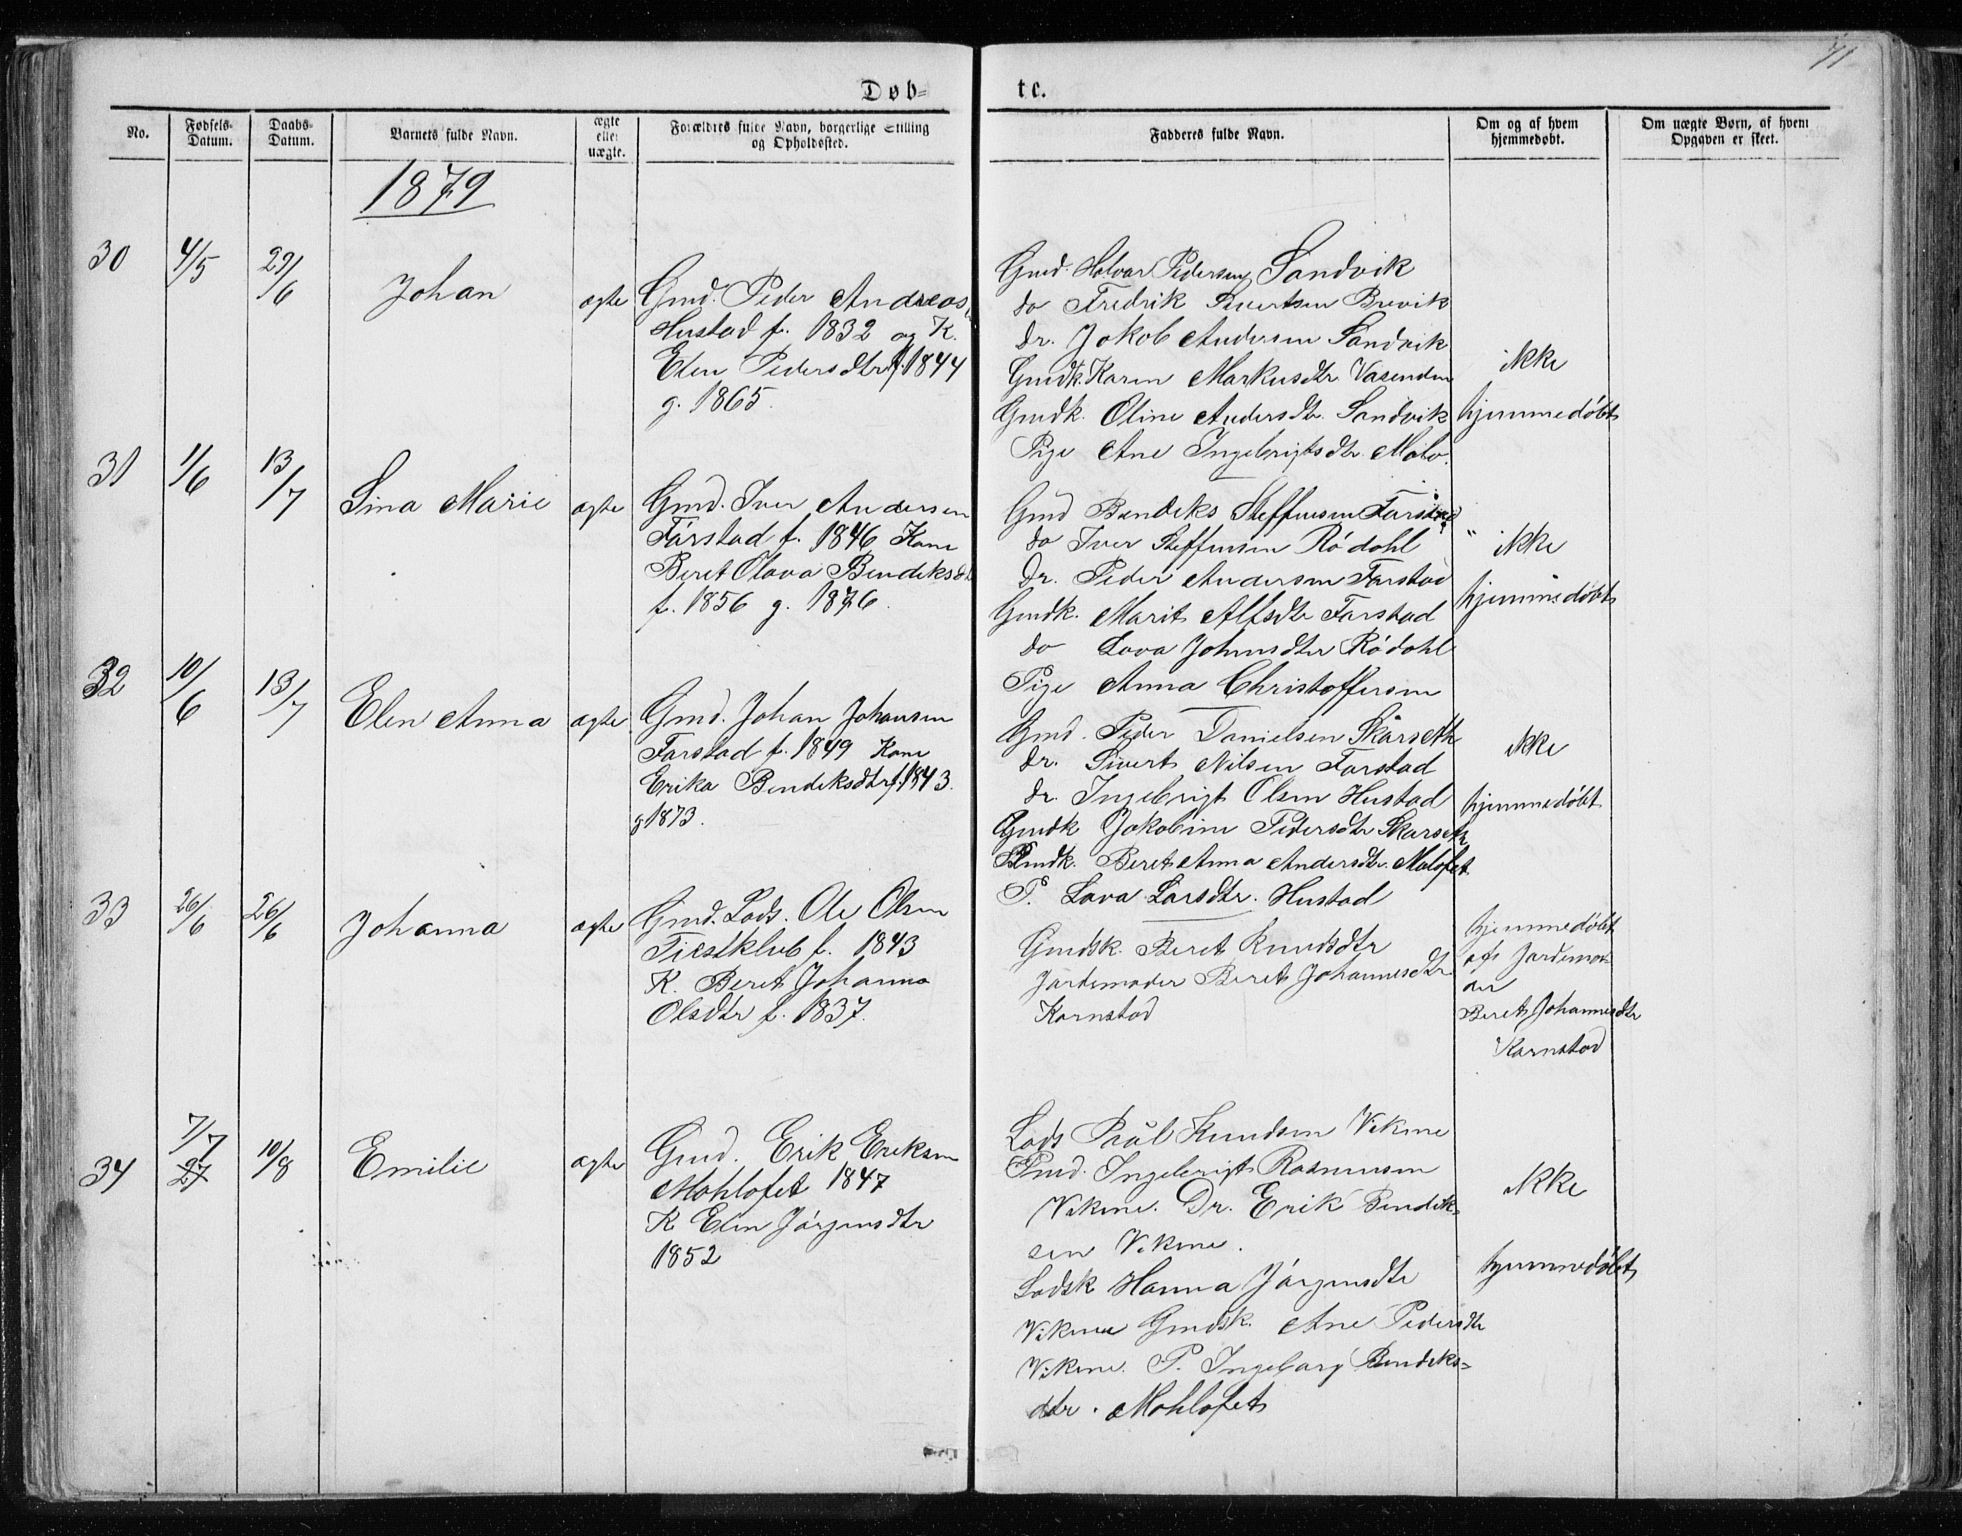 71
Døb-
te.
No.
Fødsels-
Datum.
Daabs-
Datum.
Barnets fulde Navn.
ægte
eller
uægte.
Forældres fulde Navn, borgerlige Stilling
og Opholdssted.
Fadderes fulde Navn.
Om og af hvem
hjemmedøbt.
Om uægte Børn, af hvem
Opgaven er skeet.
1879
30
4/5
29/6
Johan
ægte
Gmd. Peder Andreas
Hustad f. 1832 og K.
Elen Pedersdtr f. 1844
g. 1865.
Gmd. Halvar Pedersen Sandvik
do Fredrik Sivertsen Brevik
Dr. Jakob Andersen Sandvik
Gmdk. Karen Markusdtr Vasenden
Gmdk. Oline Andersdtr. Sandvik
Pige Ane Ingebrigtsdtr. Malo
ikke
hjemmedøbt
31
1/6
13/7
Sina Marie
ægte
Gmd. Iver Andersen
Farstad f. 1846 Kone
Beret Olava Bendeksdt
f. 1856 g. 1876.
Gmd Bendeks Steffensen Farstad
do Iver Steffensen Rødahl
Dr. Peder Andersen Farstad
Gmdk. Marit Alfsdtr Farstad
do Lava Johansdtr Rødahl
Pige Anna Christoffersen
" ikke
hjemmedøbt
32
10/6
13/7
Elen Anna
ægte
Gmd. Johan Johansen
Farstad f. 1849 Kone
Erika Bendeksdtr f. 1843.
g 1873.
Gmd. Peder Danielsen Skarseth
Dr. Sivert Nilsen Farstad
Dr. Ingebrigt Olsen Hustad
Gmdk Jakobine Pedersdtr Skarseth
Gmdk. Beret Anna Andersdtr. Malofet
P. Lava Larsdtr. Hustad
ikke
hjemmedøbt
33
26/6
26/6
Johanna
ægte
Gmd. Lods. Ole Olsen
f. 1843
K. Beret Johanna
Olsdtr f. 1837.
Gmdsk. Beret Knudsdtr
Jordemoder Beret Johannesdtr
Karnstad
hjemmedøbt
af Jordemo
der
Beret Johannesdtr
Karnstad
34
7/7
27
10/8
Emilie
ægte
Gmd. Erik Eriksen
Mohlofet 1847
K Elen Jørgensdtr
1852
Lods Paul Knudsen Vikene
Gmd. Ingebrigt Rasmusen
Vikene. Dr. Erik Bendik-
sen Vikene.
Lodsk Hanna Jørgensdtr
Vikene Gmdsk. Ane Pedersdtr
Vikene. P. Ingeborg Bendeks-
dtr. Mohlofet
ikke
hjemmedøbt